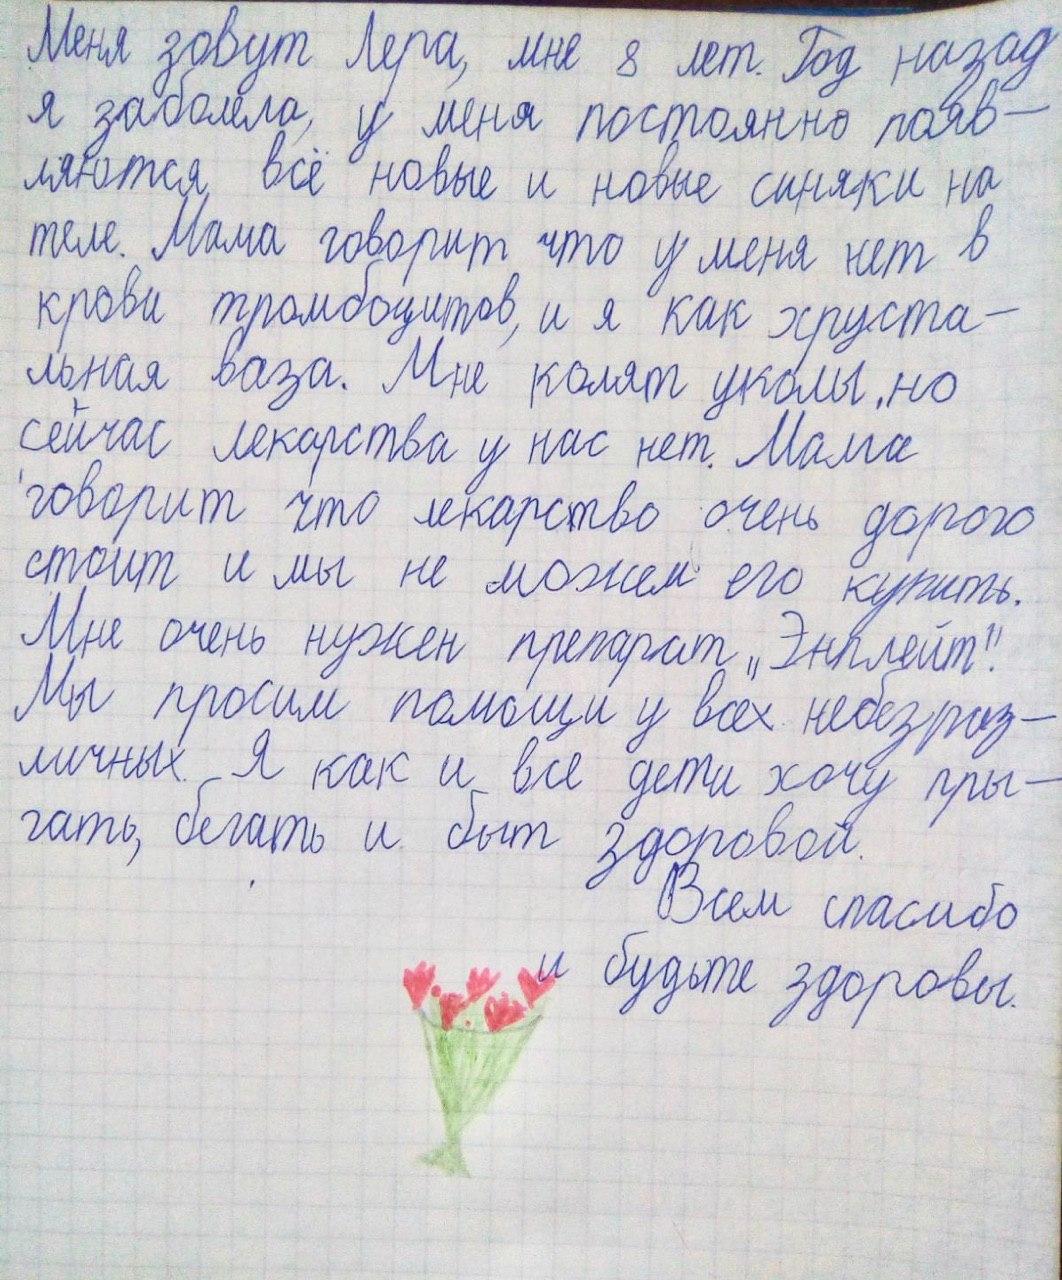 Меня зовут Лера, мне 8 лет. Год назад
я заболела, у меня постоянно появ-
ляются всё новые и новые синяки на
теле. Мама говорит что у меня нет в
крови тромбоцитов, и я как хруста-
льная ваза. Мне колят уколы, но
сейчас лекарства у нас нет. Мама
говорит что лекарство очень дорого
стоит и мы не можем его купить.
Мне очень нужен препарат „Энплейт".
Мы просим помощи у всех небезраз-
личных. Я как и все дети хочу пры-
гать, бегать и быт здоровой.
Всем спасибо
и будьте здоровы.